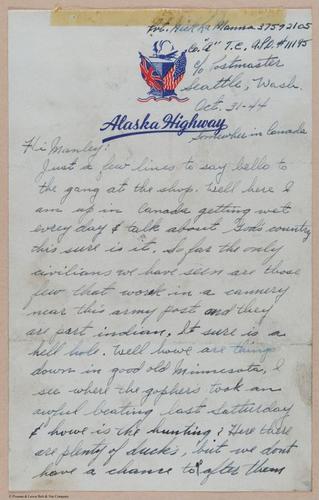 Pvt. Nick La Manna 37592105
Co. "E" T.C. A.P.O. #11195
c/o Postmaster
Seattle, Wash.
Oct. 31-44
Alaska Highway
Somewher in Canada
Hi Manley:
Just a few lines to say hello to
the gang at the shop. Well here I
am up in Canada getting wet
every day & talk about Gods country
this sure is it. So far the only
civilians we have seen are those
few that work in a cannery
near this army post and they
are part indian, It sure is a
hell hole. Well howe are things
down in good old Minnesota, I
see where the gophers took an
awful beating last Satturday
& howe is the hunting? Here there
are plenty of ducks, but we dont
have a chance to go after them